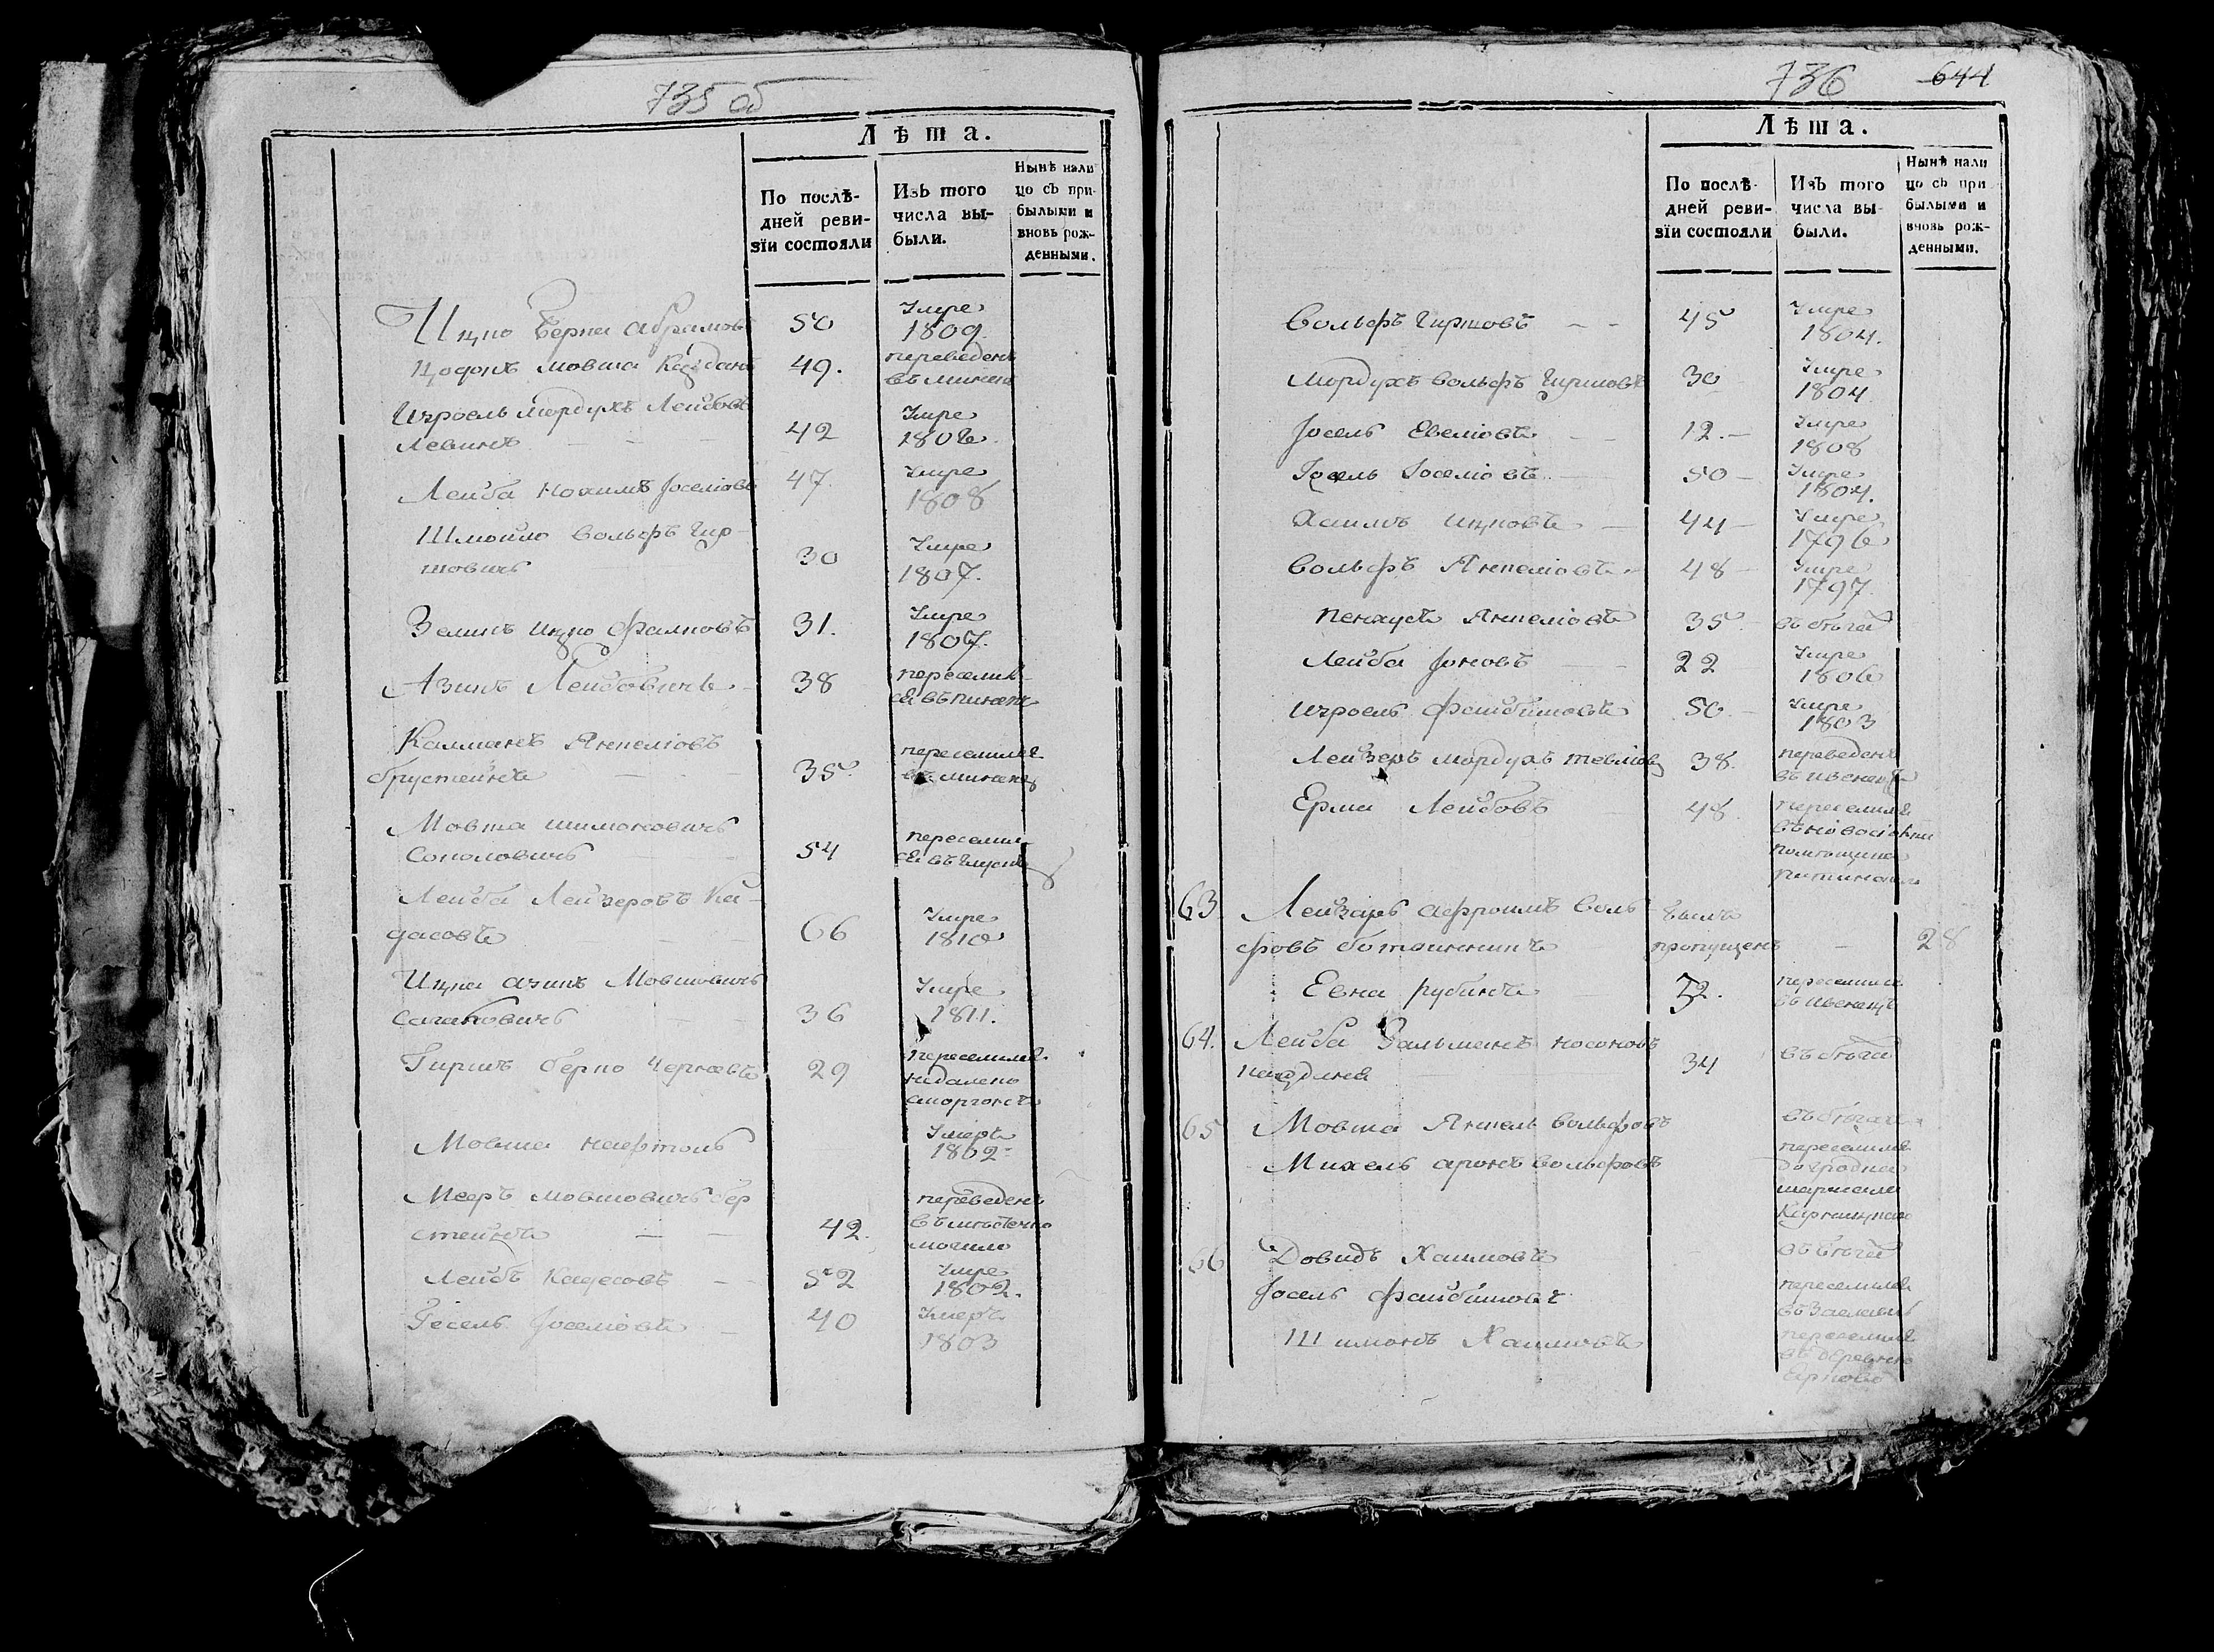 735 об
Лѣта.
По послѣ-
дней реви-
зїи состояли
Изъ того
числа вы-
были.
Нынѣ нали
цо съ при-
былыми и
вновь рож-
денными.
Ицко Берка Абрамовъ 50 Умре
1809.
мовша 49. переведенъ
въ минскъ
Израель Мордухъ Лейбовъ
Левинъ 42 Умре
1806.
Лейба Нохимъ Іоселіовъ 47. Умре
1808
Шмойло Вольфъ Гир-
шовичъ 30 Умре
1807.
Зеликъ Ицко Фалковъ 31. Умре
1807.
Азикъ Лейбовичъ 38 переселил-
ся въ пинскъ
Калманъ Янкеліовъ
брустейнъ 35. переселился
въ минскъ
Мовша шимоновичъ
Соколовичъ 54 переселил-
ся въ глускъ
Лейба Лейзеровъ Ка-
дасовъ 66 Умре
1810
Ицка азикъ Мовшовичъ
Сагаловичъ 36 Умре
1811.
Гиршъ берко Черновъ 29 переселился
недалеко
сморгонъ
Мовша нафтоль Умеръ
1802
Мееръ мовшовичъ бер
стейнъ 42. переведенъ
въ мѣстечко
могило
Лейбъ Кадесовъ 52 Умре
1802.
Іосель Іоселіовъ 40 Умеръ
1803
736 644
Лѣта.
По послѣ-
дней реви-
зїи состояли
Изъ того
числа вы-
были.
Нынѣ нали
цо съ при
былыми и
вновь рож-
денными.
Вольфъ Гиршовъ 45 Умре
1804.
Мордухъ Вольфъ Гиршовъ 30 Умре
1804
Іосель Евеліовъ 12. Умре
1808
Іосель Іоселіовъ 50 Умре
1804.
Хаимъ ицковъ 44 Умре
1796
Вольфъ Янкеліовъ 48 Умре
1797
Пенхусъ Янкеліовъ 35 въ бѣгах
Лейба Іоновъ 22 Умре
1806
Израель Файбишовъ 50. Умре
1803
Лейзеръ мордухъ тевліов 38. переведенъ
въ ивенецъ
Ерма Лейбовъ 48. переселился
въ новоселки
помѣщика
63. Лейзаръ афроимъ Воль былъ
фовъ ботвинникъ пропущенъ 28
Евна рубинъ 32. переселился
въ ивенецъ
64. Лейба Зальманъ носоновъ въ бѣгах
34
65 Мовша Янкель Вольфовъ въ бѣгахъ
Михель аронъ Вольфовъ переселился
до гродна
66 Довидъ Хаимовъ въ бѣгах
Іосель Файбишовъ переселился
въ Заславль
Шимонъ Хаимовъ переселился
въ деревню